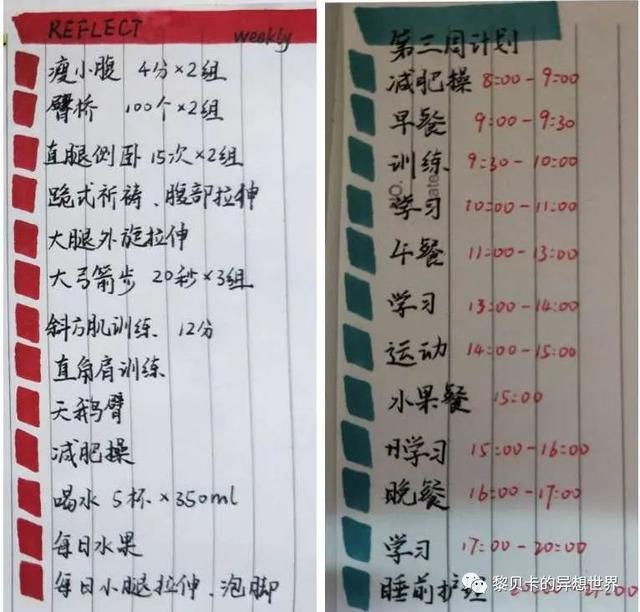 REFLECT weekly
瘦小腹 4分×2组
臂桥 100个×2组
直腿侧卧 15次×2组
跪式祈祷、腹部拉伸
大腿外旋拉伸
大弓箭步 20秒×3组
斜方肌训练 12分
直角肩训练
天鹅臂
减肥操
喝水 5杯×350ml
每日水果
每日小腿拉伸、泡脚
第三周计划
减肥操 8:00-9:00
早餐 9:00-9:30
训练 9:30-10:00
学习 10:00-11:00
午餐 11:00-13:00
学习 13:00-14:00
运动 14:00-15:00
水果餐 15:00
学习 15:00-16:00
晚餐 16:00-17:00
学习 17:00-20:00
睡前护理
黎贝卡的异想世界